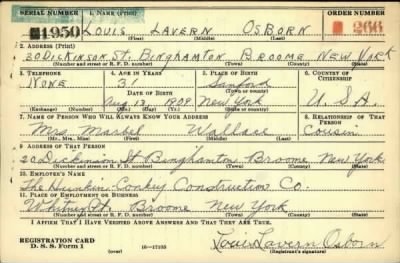 SERIAL NUMBER 1. NAME (Print) ORDER NUMBER
1950 LOUIS LAVERN OSBORN 266
(First) (Middle) (Last)
2. ADDRESS (Print)
20 DICKINSON ST. BINGHAMTON BROOME NEW YORK
(Number and street or R. F. D. number) (Town) (County) (State)
3. TELEPHONE 4. AGE IN YEARS 5. PLACE OF BIRTH 6. COUNTRY OF CITIZENSHIP
NONE 31 Sanford
DATE OF BIRTH (Town or county)
Aug 13 1909 New York U.S.A.
(Exchange) (Number) (Mo.) (Day) (Yr.) (State or country)
7. NAME OF PERSON WHO WILL ALWAYS KNOW YOUR ADDRESS 8. RELATIONSHIP OF THAT PERSON
Mrs. Mabel Wallace Cousin
(Mr., Mrs., Miss) (First) (Middle) (Last)
9. ADDRESS OF THAT PERSON
20 Dickinson St Binghamton Broome New York
(Number and street or R. F. D. number) (Town) (County) (State)
10. EMPLOYER'S NAME
The Hunkin-Conkey Construction Co.
11. PLACE OF EMPLOYMENT OR BUSINESS
Broome New York
(Number and street or R. F. D. number) (Town) (County) (State)
I AFFIRM THAT I HAVE VERIFIED ABOVE ANSWERS AND THAT THEY ARE TRUE.
REGISTRATION CARD
D. S. S. Form 1 (over) 16-17105 Louis Lavern Osborn
(Registrant's signature)